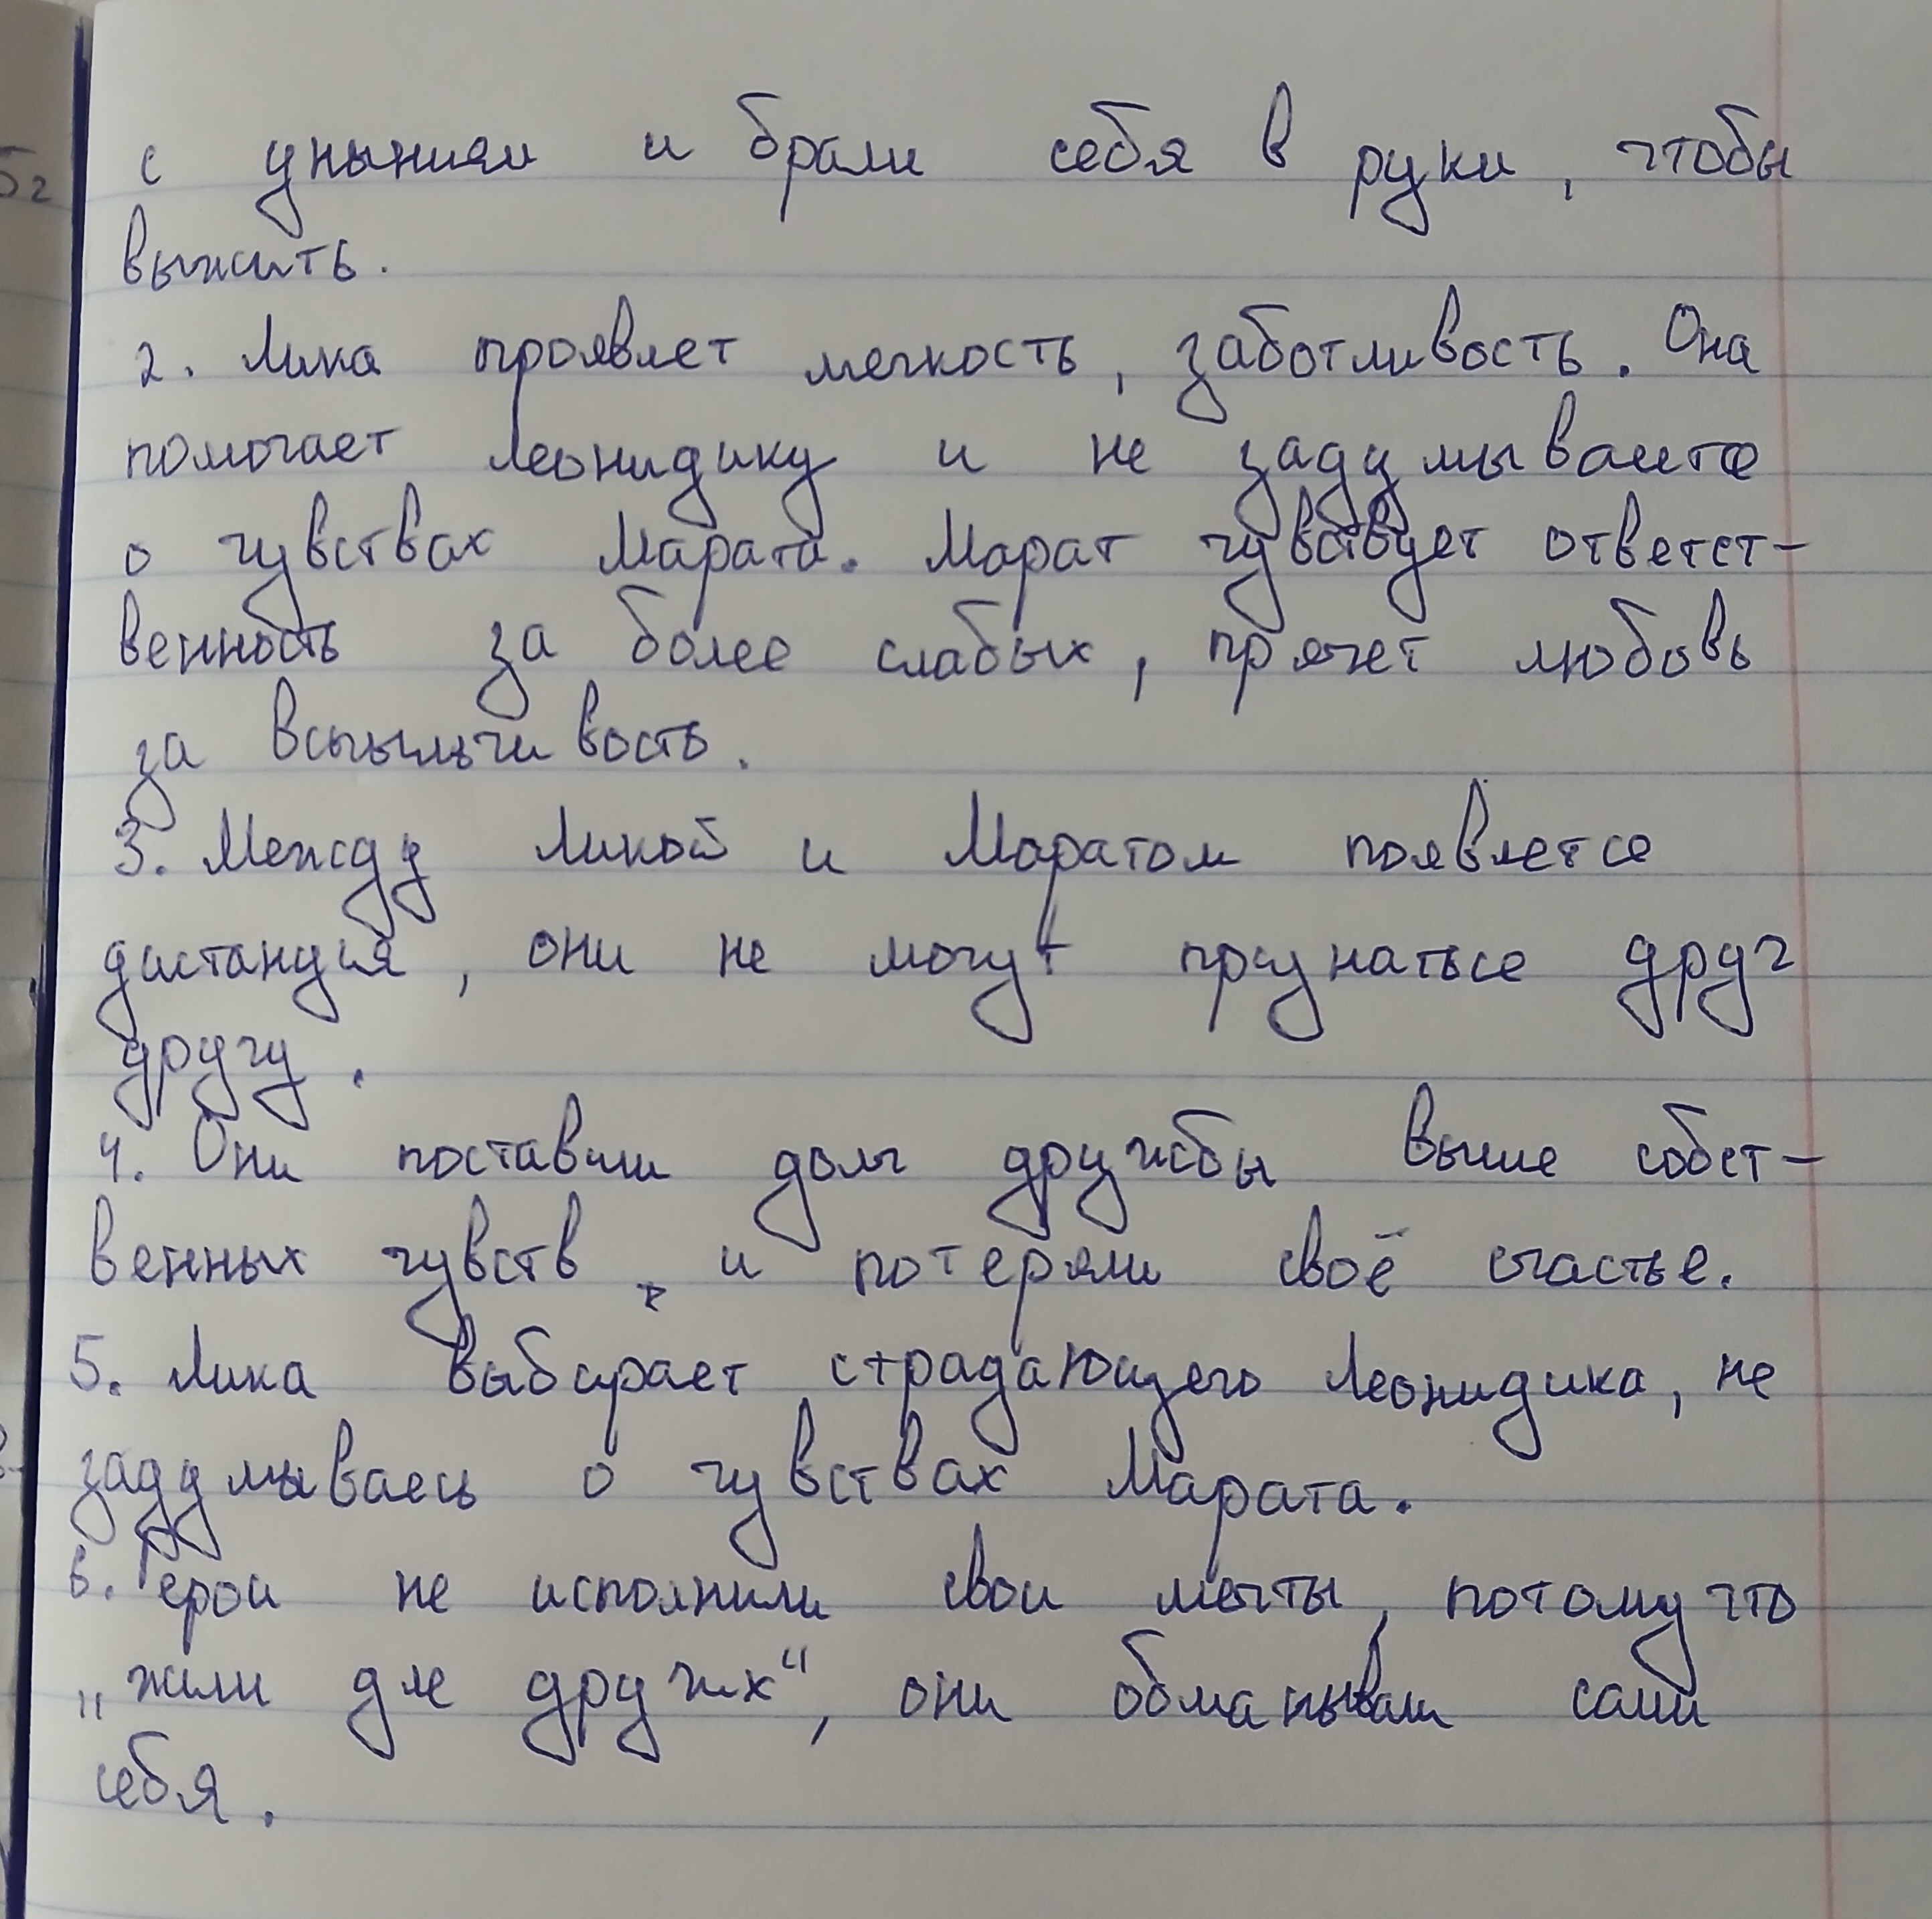 с унынием и брали себя в руки, чтобы
выжить.
2. Лика проявлет мегкость, заботливость. Она
помогает Леонидику и не задумывается
о чувствах Марата. Марат чувствует ответст-
венность за более слабых, прячет любовь
за вспыльчивость.
3. Между Ликой и Маратом появлется
дистанция, они не могут признаться друг
другу.
4. Они поставили долг дружбы выше собст-
венных чувств и потеряли своё счастье.
5. Лика выбирает страдающего Леонидика, не
задумываясь о чувствах Марата.
6. Герои не исполнили свои мечты, потому что
„жили для других“, они обманывали сами
себя.
5г